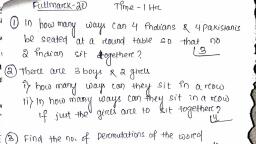 Fullmark-20 Time-1 Hr
① In how many ways can 4 Indians & 4 Pakistanis
be seated at a round table so that no
2 Indian sit together? [3
② There are 3 boys & 2 girls
i) how many ways can they sit in a row
ii) In how many ways can they sit in a row
if just the girls are to sit together? [4
③ Find the no. of permutations of the word